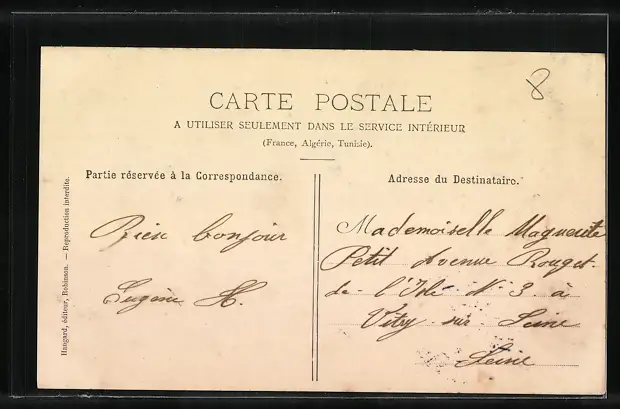 8
CARTE POSTALE
A UTILISER SEULEMENT DANS LE SERVICE INTÉRIEUR
(France, Algérie, Tunisie).
Partie réservée à la Correspondance.
Bien bonjour
Eugène H.
Adresse du Destinataire.
Mademoiselle Maguerite
Petit Avenue Rouget-
de l'Isle N° 3 à
Vitry sur Seine
Seine
Hangard, éditeur, Robinson. — Reproduction interdite.